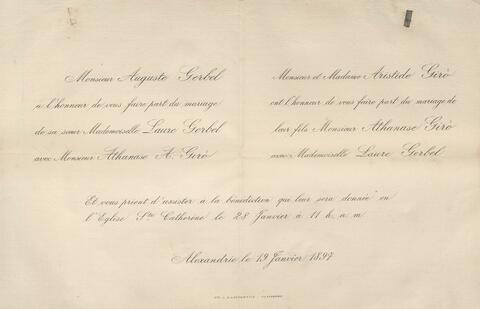 Monsieur Auguste Gorbel
a l'honneur de vous faire part du mariage
de sa sœur Mademoiselle Laure Gorbel
avec Monsieur Athanase A. Girò
Monsieur et Madame Aristide Girò
ont l'honneur de vous faire part du mariage de
leur fils Monsieur Athanase Girò
avec Mademoiselle Laure Gorbel
Et vous prient d'assister a la bénédiction qui leur sera donnée en
l'Eglise Ste Catherine le 28 Janvier à 11 h. a. m.
Alexandrie le 19 Janvier 1897